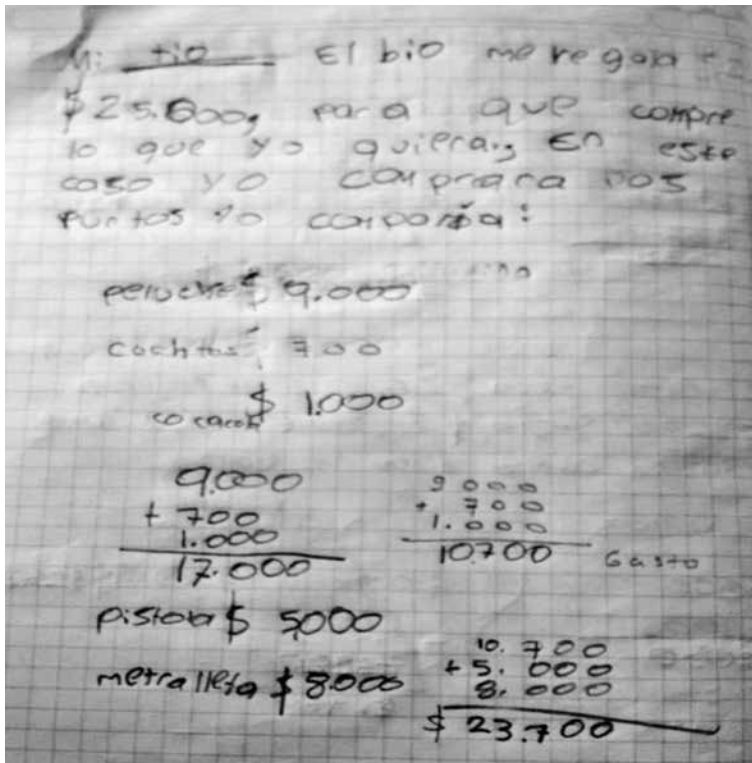 Mi tio El bio me regala
$25.600, para que compre
lo que yo quiera, En este
caso yo comprara dos
puntos yo
peluche $ 9.000
cochitos 700
$ 1.000
9.000
+ 700
1.000
17.000
9 000
+ 700
1.000
10700 Gasto
pistola $ 5000
metralleta $ 8000
10.700
+ 5.000
8.000
$ 23.700